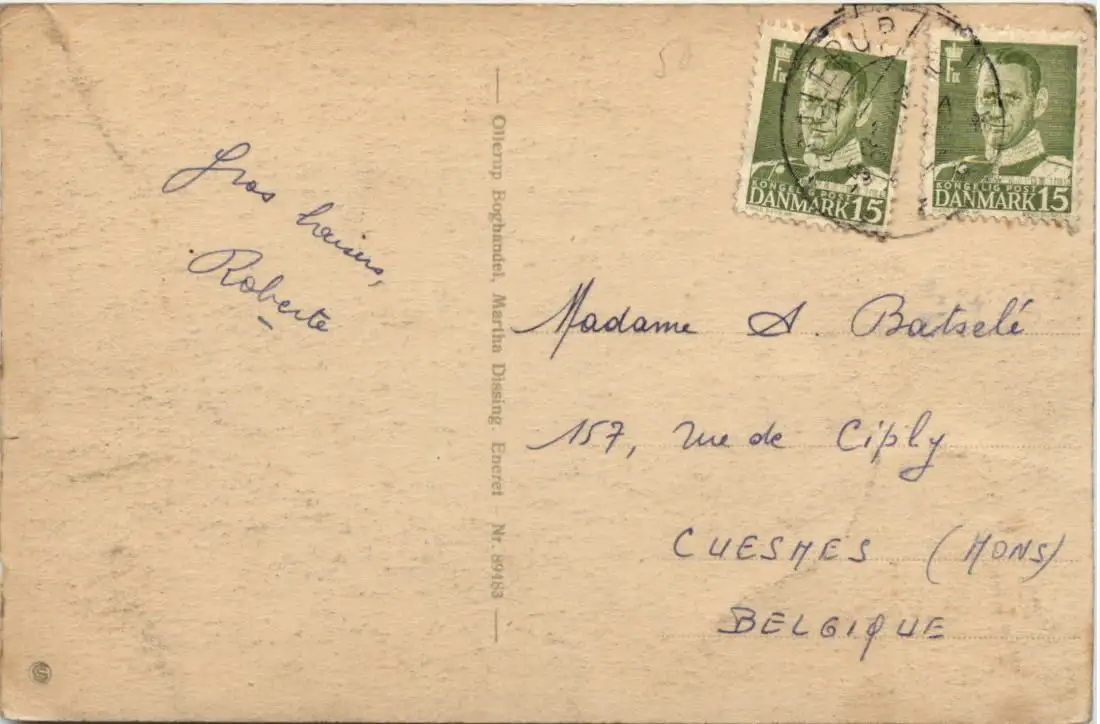 50
Gros baisers,
Roberte
Ollerup Boghandel, Martha Dissing. Eneret - Nr. 89483
OLLERUP
KONGELIG POST
DANMARK 15
KONGELIG POST
DANMARK 15
Madame A. Batselé
157, rue de Ciply
CUESMES (MONS)
BELGIQUE